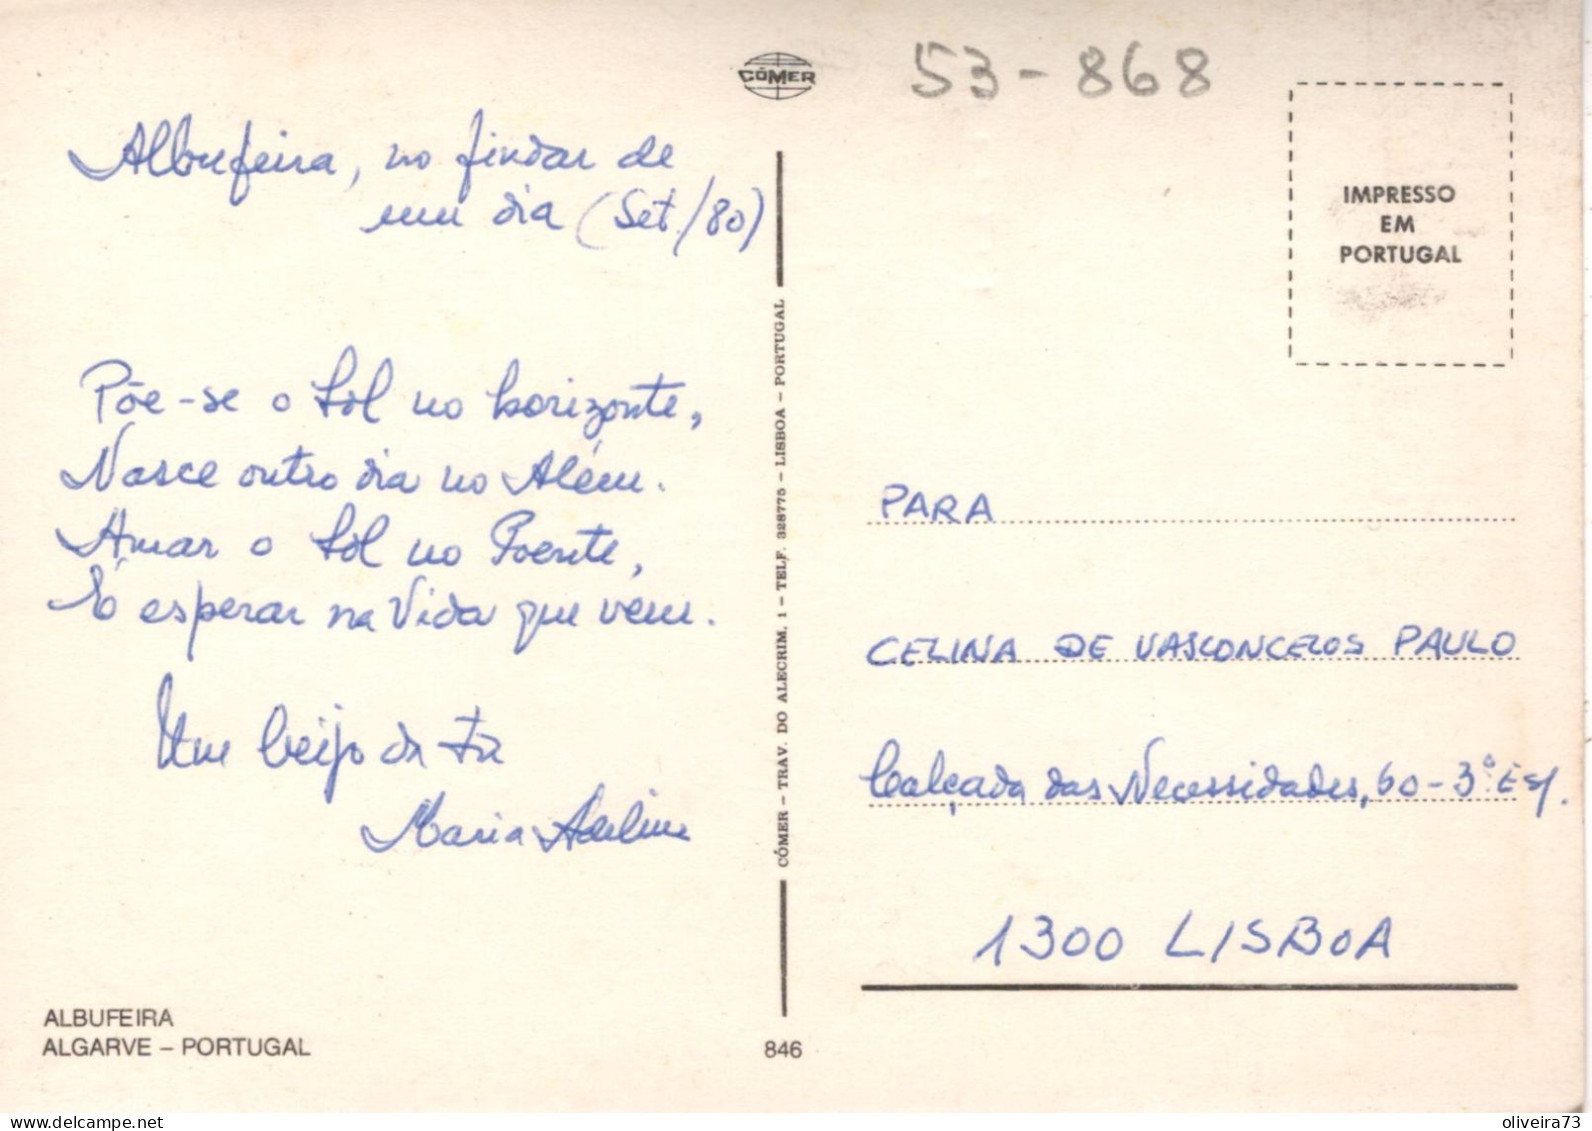 CÓMER
53-868
Albufeira, no findar de
um dia (Set./80)
Põe-se o Sol no horizonte,
Nasce outro dia no Além.
Amar o Sol no Poente,
É esperar na Vida que vem.
Um beijo da
Maria Adelina
ALBUFEIRA
ALGARVE – PORTUGAL
CÓMER – TRAV. DO ALECRIM, 1 – TELF. 328775 – LISBOA – PORTUGAL
846
IMPRESSO
EM
PORTUGAL
PARA
CELINA DE VASCONCELOS PAULO
Calçada das Necessidades, 60-3º Esq.
1300 LISBOA
www.delcampe.net
oliveira73